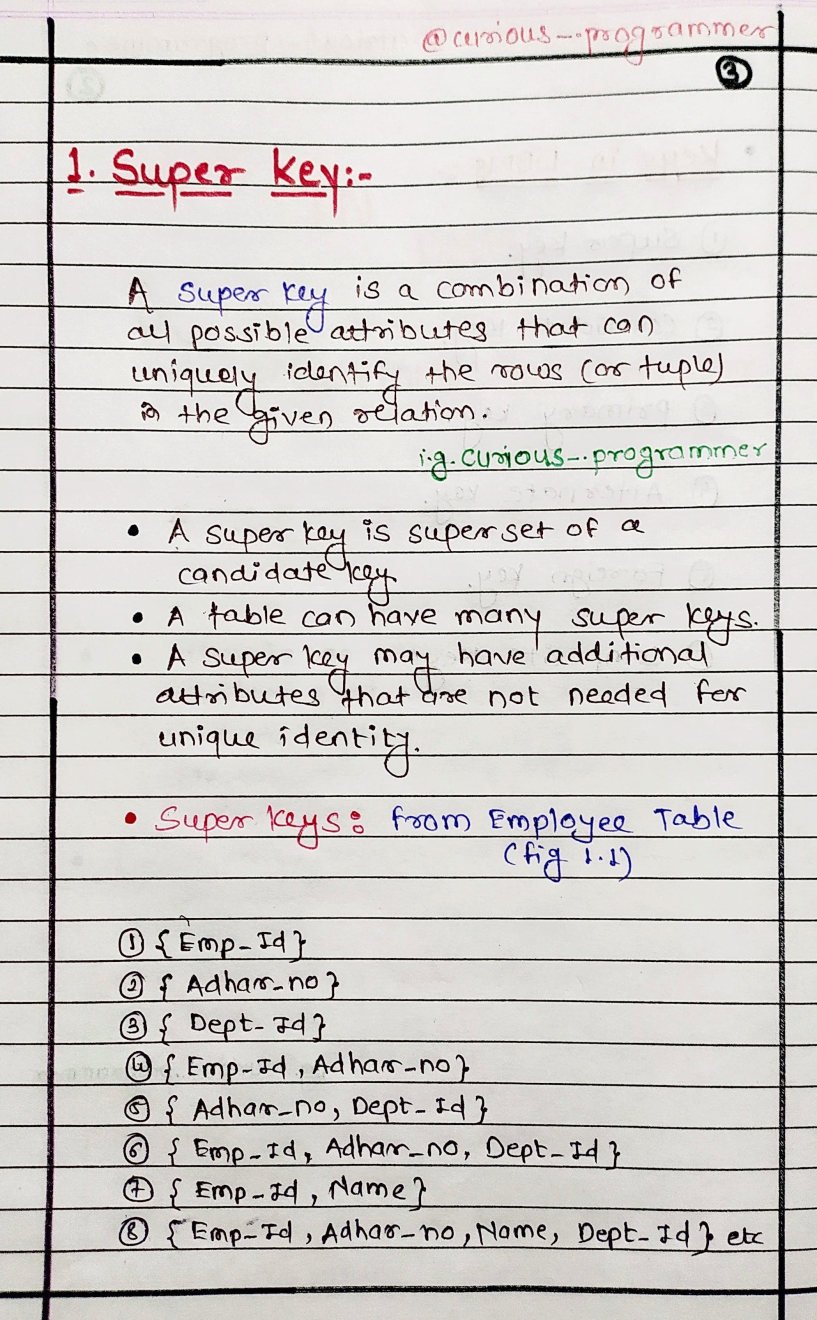 @curious_.programmer
3
1. Super key:-
A super key is a combination of
all possible attributes that can
uniquely identify the rows (or tuple)
in the given relation.
i.g. curious_.programmer
• A super key is superset of a
candidate key
• A table can have many super keys.
• A super key may have additional
attributes that are not needed for
unique identity.
• Super keys: from Employee Table
(fig 1.1)
① { Emp_Id }
② { Adhar_no }
③ { Dept_Id }
④ { Emp_Id, Adhar_no }
⑤ { Adhar_no, Dept_Id }
⑥ { Emp_Id, Adhar_no, Dept_Id }
⑦ { Emp_Id, Name }
⑧ { Emp_Id, Adhar_no, Name, Dept_Id } etc